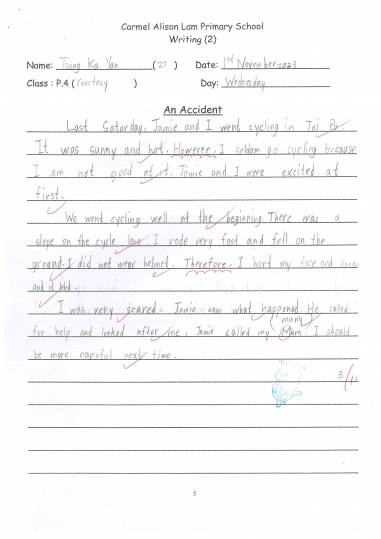 Carmel Alison Lam Primary School
Writing (2)
Name: Tsang Ka Yan (21) Date: 1st November 2023
Class : P.4 ( Courtesy ) Day: Wednesday
An Accident
Last Saturday, Jamie and I went cycling in Tai Po.
It was sunny and hot. However, I seldom go cycling because
I am not good at it. Jamie and I were excited at
first.
We went cycling well at the beginning. There was a
slope on the cycle lane. I rode very fast and fell on the
ground. I did not wear helmet. Therefore, I hurt my face and knee
and it
I was very scared. Jamie saw what happened. He called
(mum)
for help and looked after me. Jamie called my Mum. I should
be more careful next time.
3/11
5